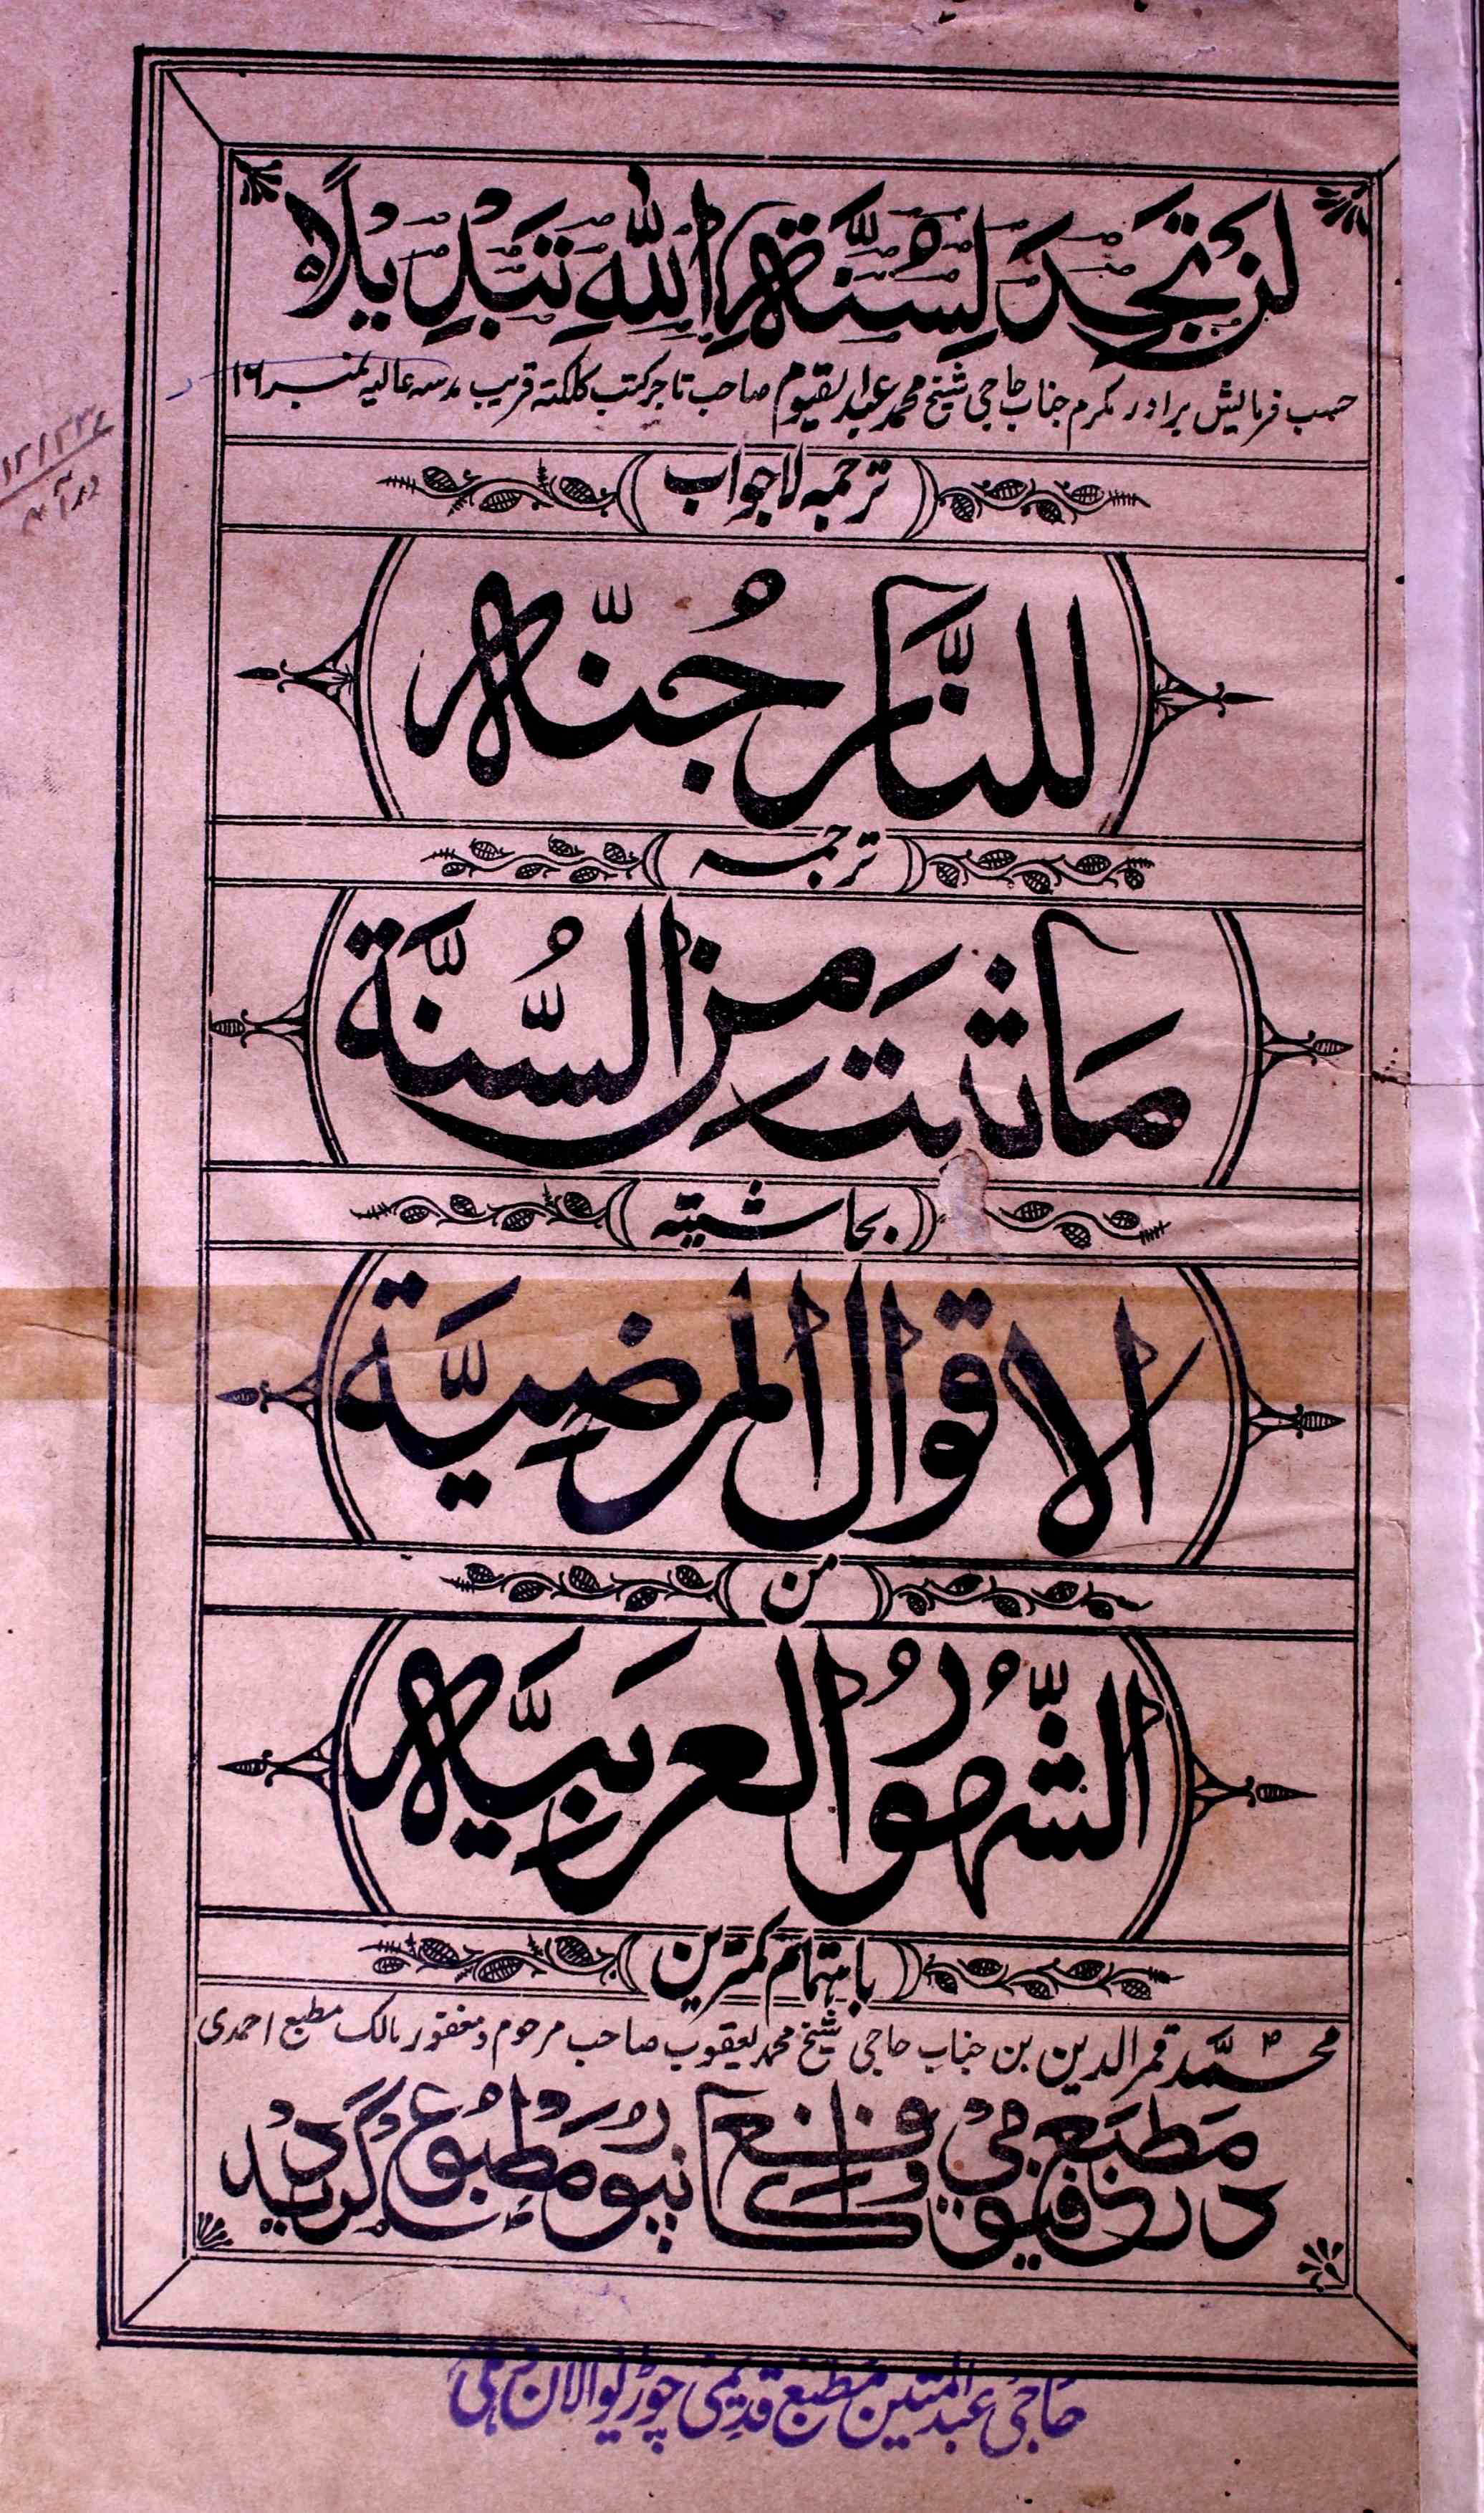 لَنْ تَجِدَ لِسُنَّةِ اللّٰهِ تَبْدِيْلًا
حسب فرمایش برادر مکرم جناب حاجی شیخ محمد عبدالقیوم صاحب تاجر کتب کلکتہ قریب مدرسہ عالیہ نمبر ۱۶
ترجمہ لاجواب
للنَّار جُنّة
ترجمہ
مَا ثبَتَ من السُّنَّة
بحاشیتہ
الاقوال المرضیَّة
من
الشُّهُورُ العَرَبیَّة
باہتمام کمترین
محمّد قمر الدین بن جناب حاجی شیخ محمد یعقوب صاحب مرحوم و مغفور مالک مطبع احمدی
در مطبع مجیدی واقع کانپور مطبوع گردید
حاجی عبدالمتین مطبع قدیمی چوڑیوالان دہلی